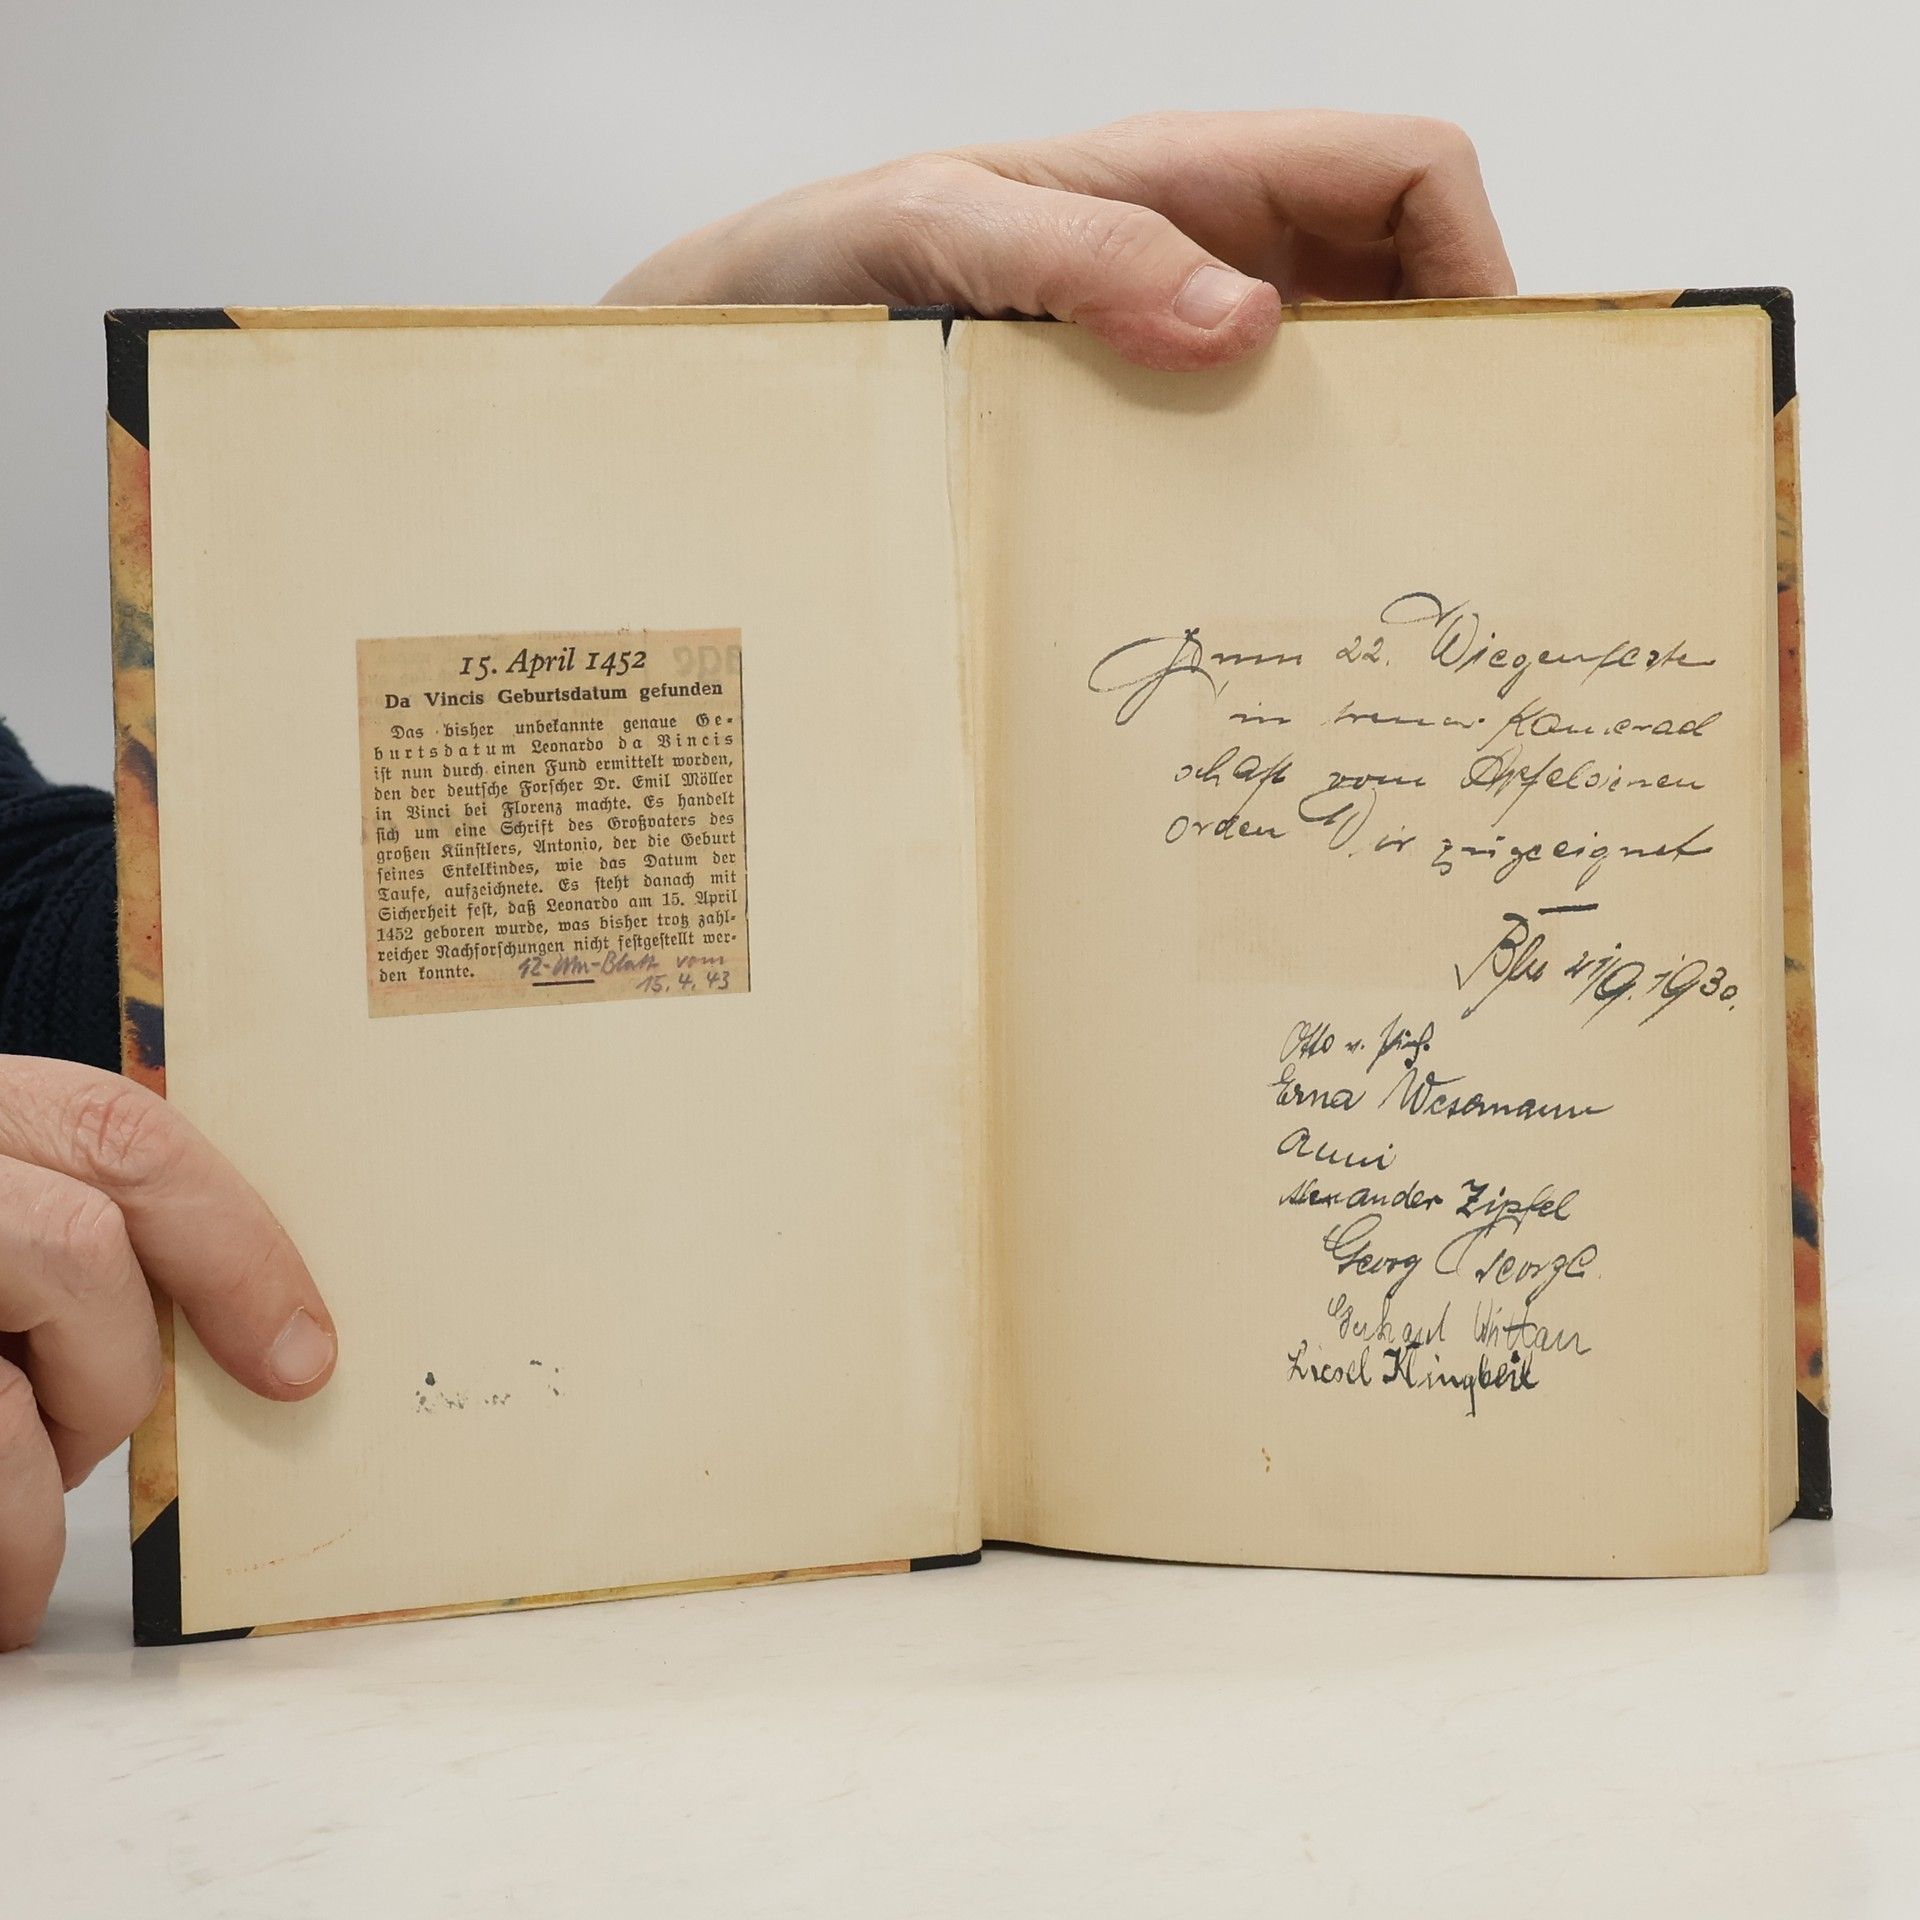 15. April 1452
Da Vincis Geburtsdatum gefunden
Das bisher unbekannte genaue Ge-
burtsdatum Leonardo da Vincis
ist nun durch einen Fund ermittelt worden,
den der deutsche Forscher Dr. Emil Möller
in Vinci bei Florenz machte. Es handelt
sich um eine Schrift des Großvaters des
großen Künstlers, Antonio, der die Geburt
seines Enkelkindes, wie das Datum der
Taufe, aufzeichnete. Es steht danach mit
Sicherheit fest, daß Leonardo am 15. April
1452 geboren wurde, was bisher trotz zahl-
reicher Nachforschungen nicht festgestellt wer-
den konnte.
12-Uhr-Blatt vom
15. 4. 43
Zum 22. Wiegenfeste
in treuer Kamerad
schaft vom Apfelsinen
orden Dir zugeeignet
1930.
Otto v.
Erna Wesemann
Anni
Alexander Zipfel
Georg
Gerhard Wittau
Liesel Klingbeil